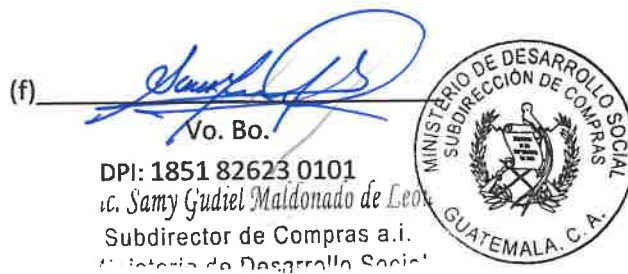 (f)
Vo. Bo.
DPI: 1851 82623 0101
ic. Samy Gudiel Maldonado de León
Subdirector de Compras a.i.
Ministerio de Desarrollo Social
MINISTERIO DE DESARROLLO SOCIAL
SUBDIRECCIÓN DE COMPRAS
GUATEMALA, C. A.